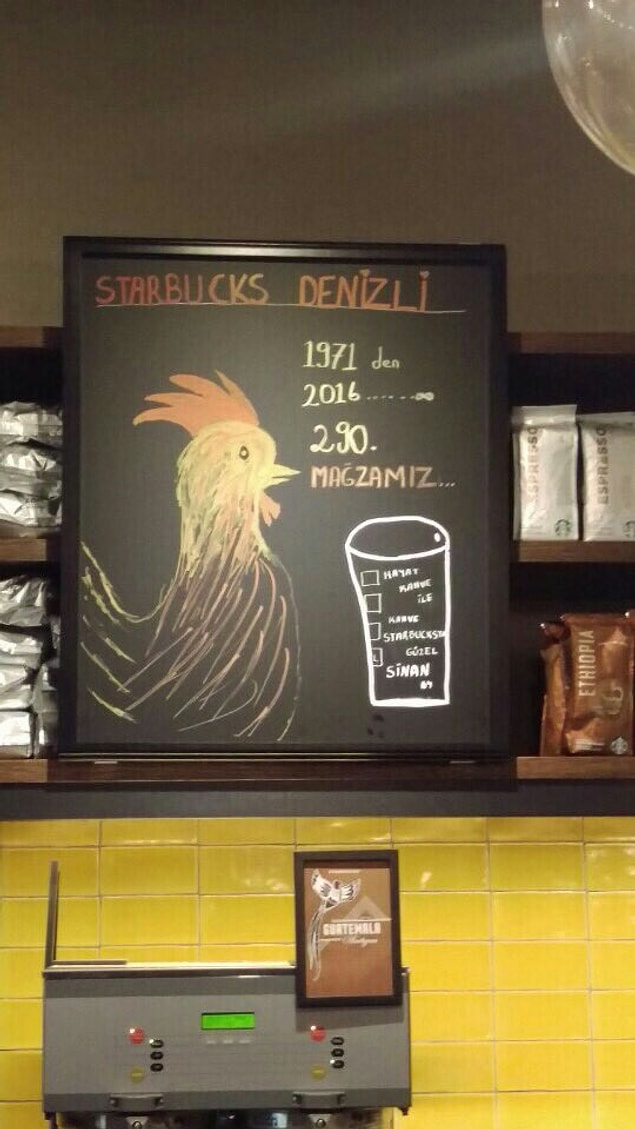 STARBUCKS DENİZLİ
1971 den
2016.......∞
290.
MAĞZAMIZ...
HAYAT
KAHVE
İLE
KAHVE
STARBUCKSTA
GÜZEL
L SİNAN
ESPRESSO
ESPRESSO
ETHIOPIA
GUATEMALA
Antigua